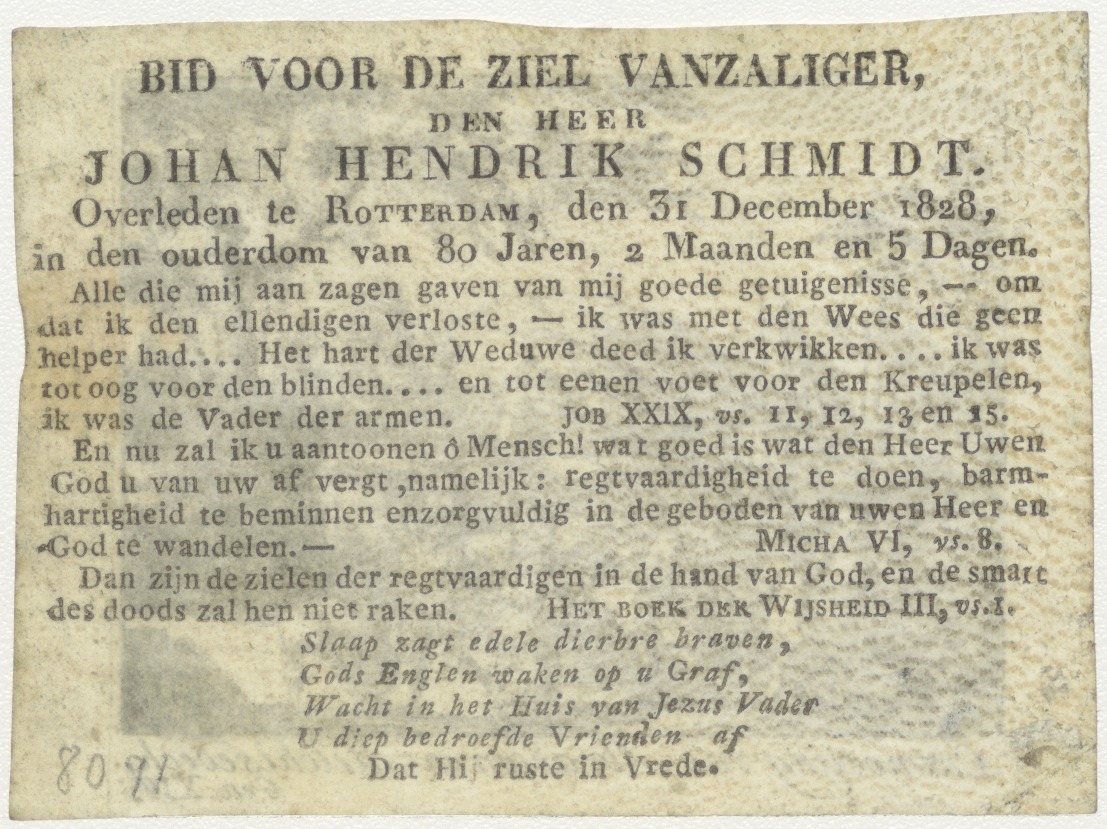 BID VOOR DE ZIEL VANZALIGER,
DEN HEER
JOHAN HENDRIK SCHMIDT.
Overleden te ROTTERDAM, den 31 December 1828,
in den ouderdom van 80 Jaren, 2 Maanden en 5 Dagen.
Alle die mij aan zagen gaven van mij goede getuigenisse, — om
dat ik den ellendigen verloste, — ik was met den Wees die geen
helper had.... Het hart der Weduwe deed ik verkwikken.... ik was
tot oog voor den blinden.... en tot eenen voet voor den Kreupelen,
ik was de Vader der armen. JOB XXIX, vs. 11, 12, 13 en 15.
En nu zal ik u aantoonen ô Mensch! wat goed is wat den Heer Uwen
God u van uw af vergt ,namelijk: regtvaardigheid te doen, barm-
hartigheid te beminnen enzorgvuldig in de geboden van uwen Heer en
God te wandelen.— MICHA VI, vs. 8.
Dan zijn de zielen der regtvaardigen in de hand van God, en de smart
des doods zal hen niet raken. HET BOEK DER WIJSHEID III, vs. 1.
Slaap zagt edele dierbre braven,
Gods Englen waken op u Graf,
Wacht in het Huis van Jezus Vader
U diep bedroefde Vrienden af
Dat Hij ruste in Vrede.
80 91